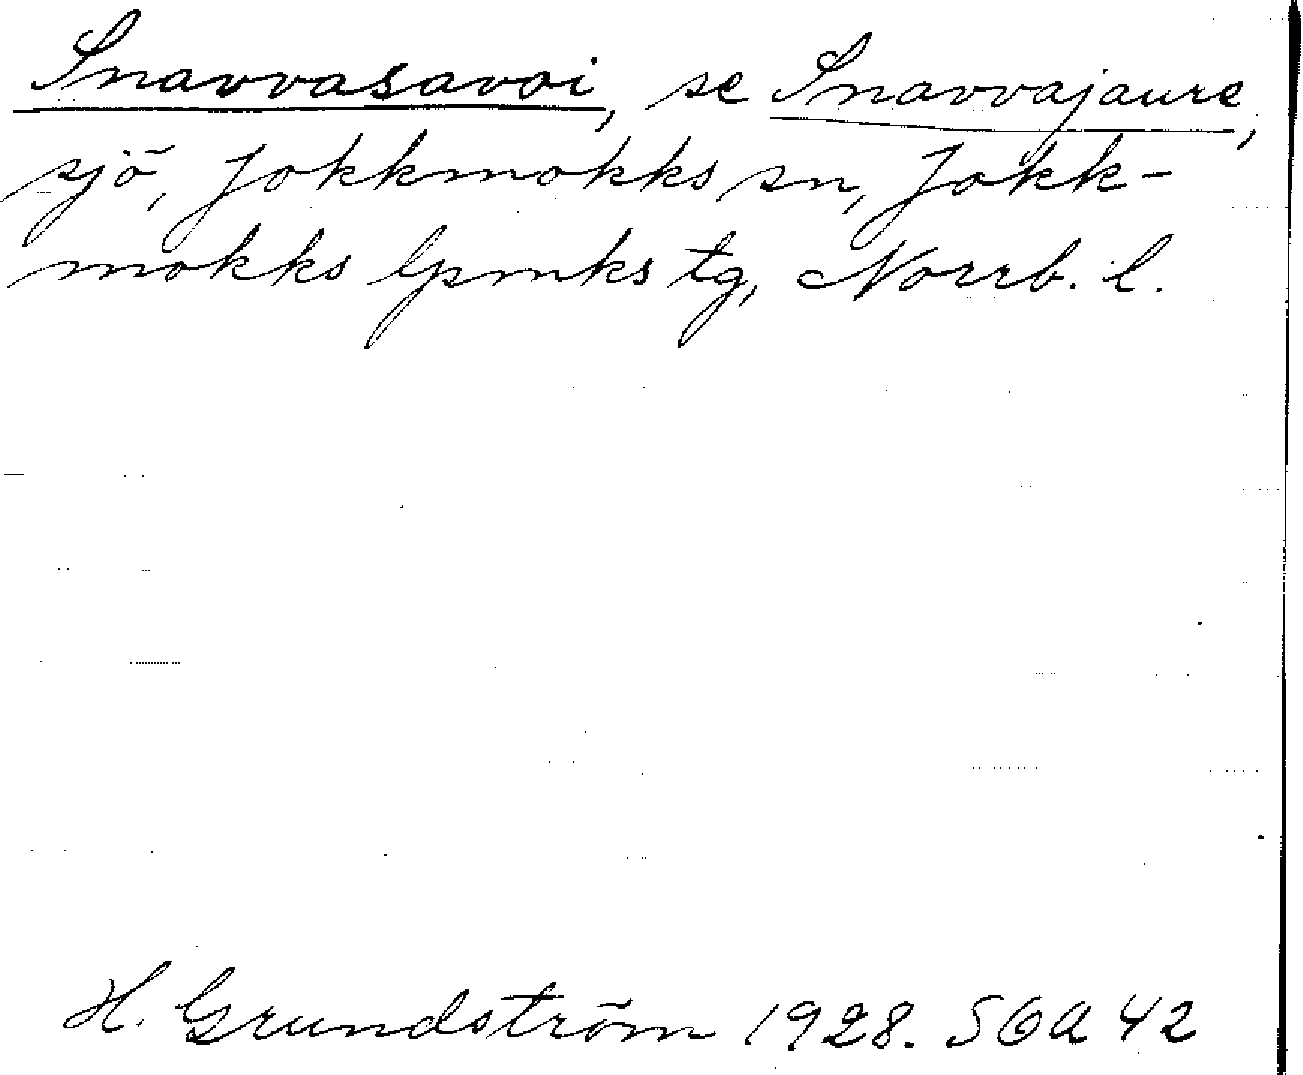 Snavvasavoi, se Snavvajaure,
sjö, Jokkmokks sn, Jokk-
mokks lpmks tg, Norrb. l.
H. Grundström 1928. SOA 42